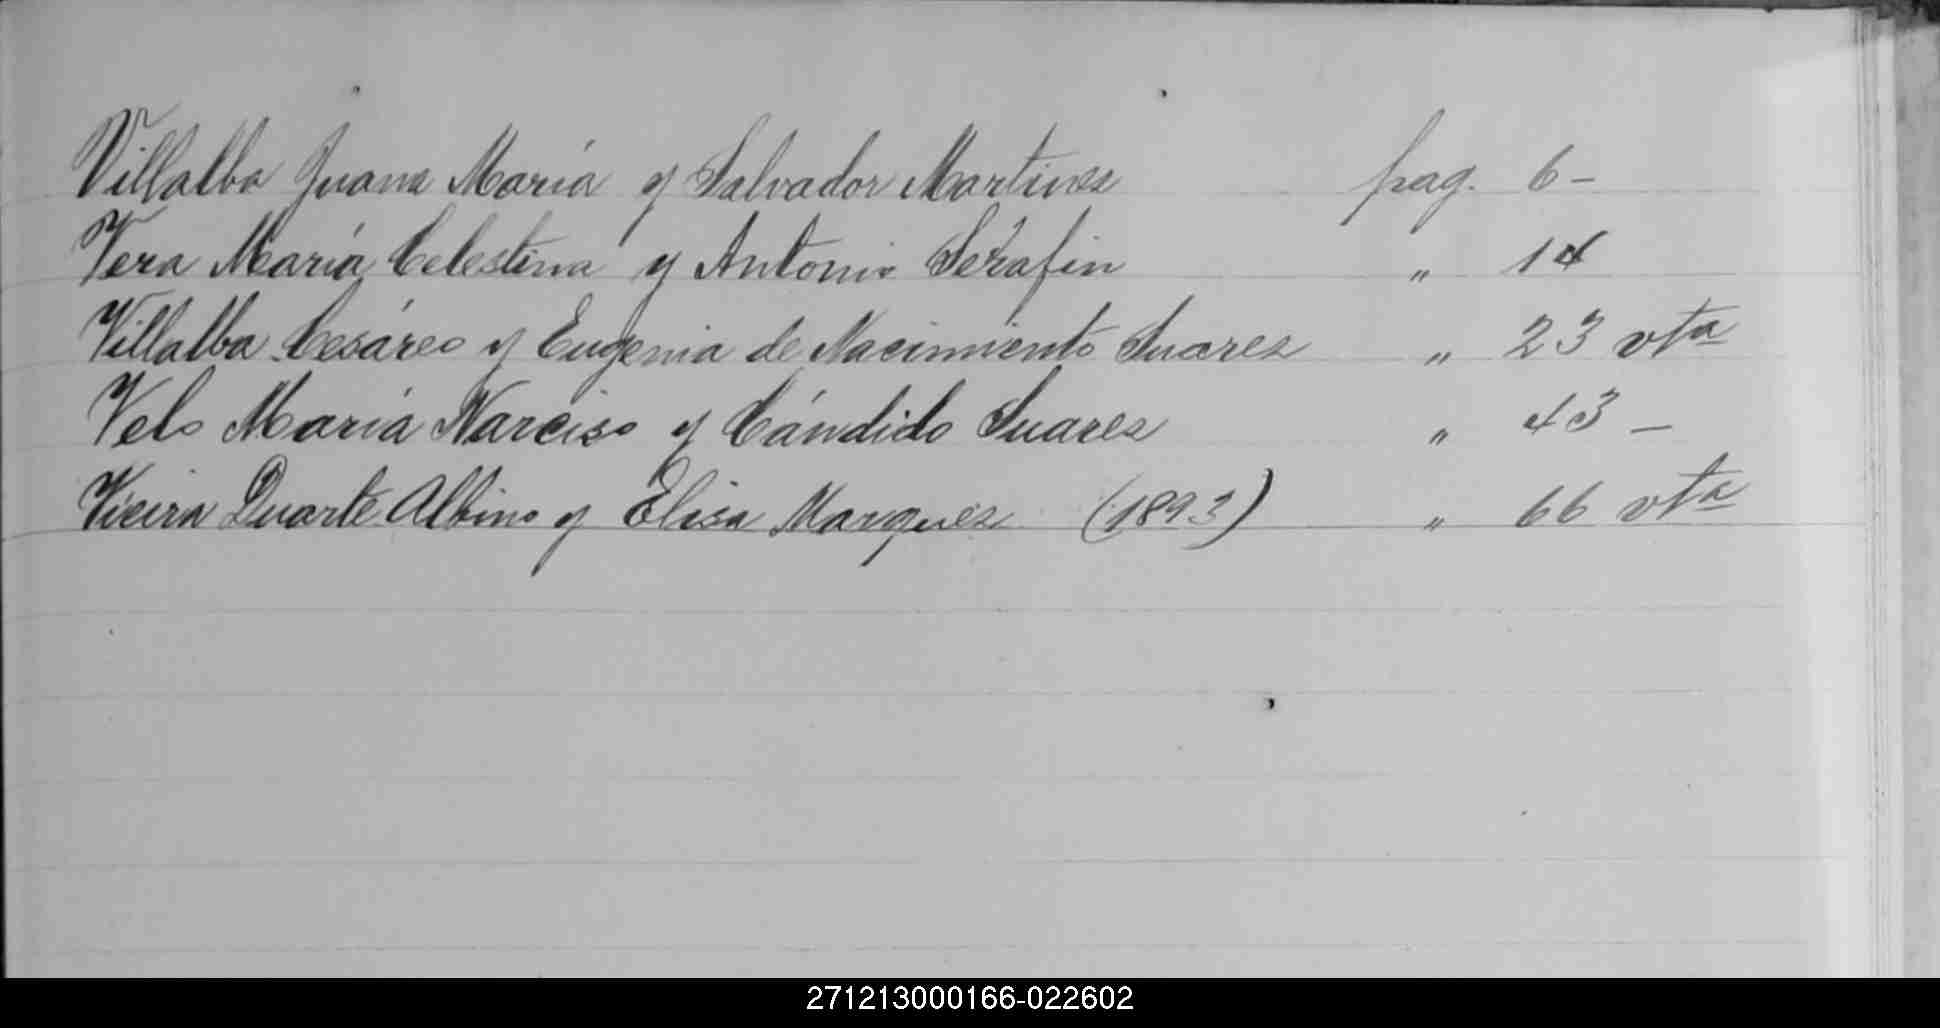 Villalba Juana María y Salvador Martinez pag. 6 -
Vera María Celestina y Antonio Serafin " 14
Villalba Cesáreo y Eugenia de Nacimiento Suarez " 23 vta
Velo María Narciso y Cándido Suarez " 43 -
Vieira Duarte Albino y Elisa Marquez (1893) " 66 vta
271213000166-022602